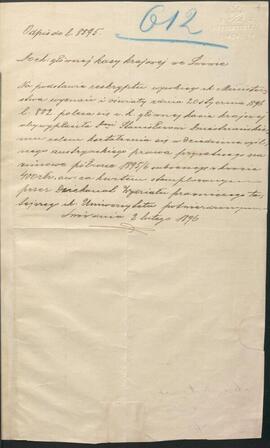 612
Odpis do l. 8895.
Do ck głównej kasy krajowej we Lwowie
Na podstawie reskryptu wysokiego ck Minister-
stwa wyznań i oświaty z dnia 20 stycznia 1896
l. 882 poleca się ck głównej kasie krajowej
aby wypłaciła Stanisławowi
celem kształcenia się w
nego austryackiego prawa prywatnego na
zimowe półrocze 1895/6 w kwocie
400 złr. aw. za kwitem stemplowanym
przez Dziekanat Wydziału prawniczego tu-
tejszego ck. Uniwersytetu potwierdzonym
Lwów dnia 2 lutego 1896